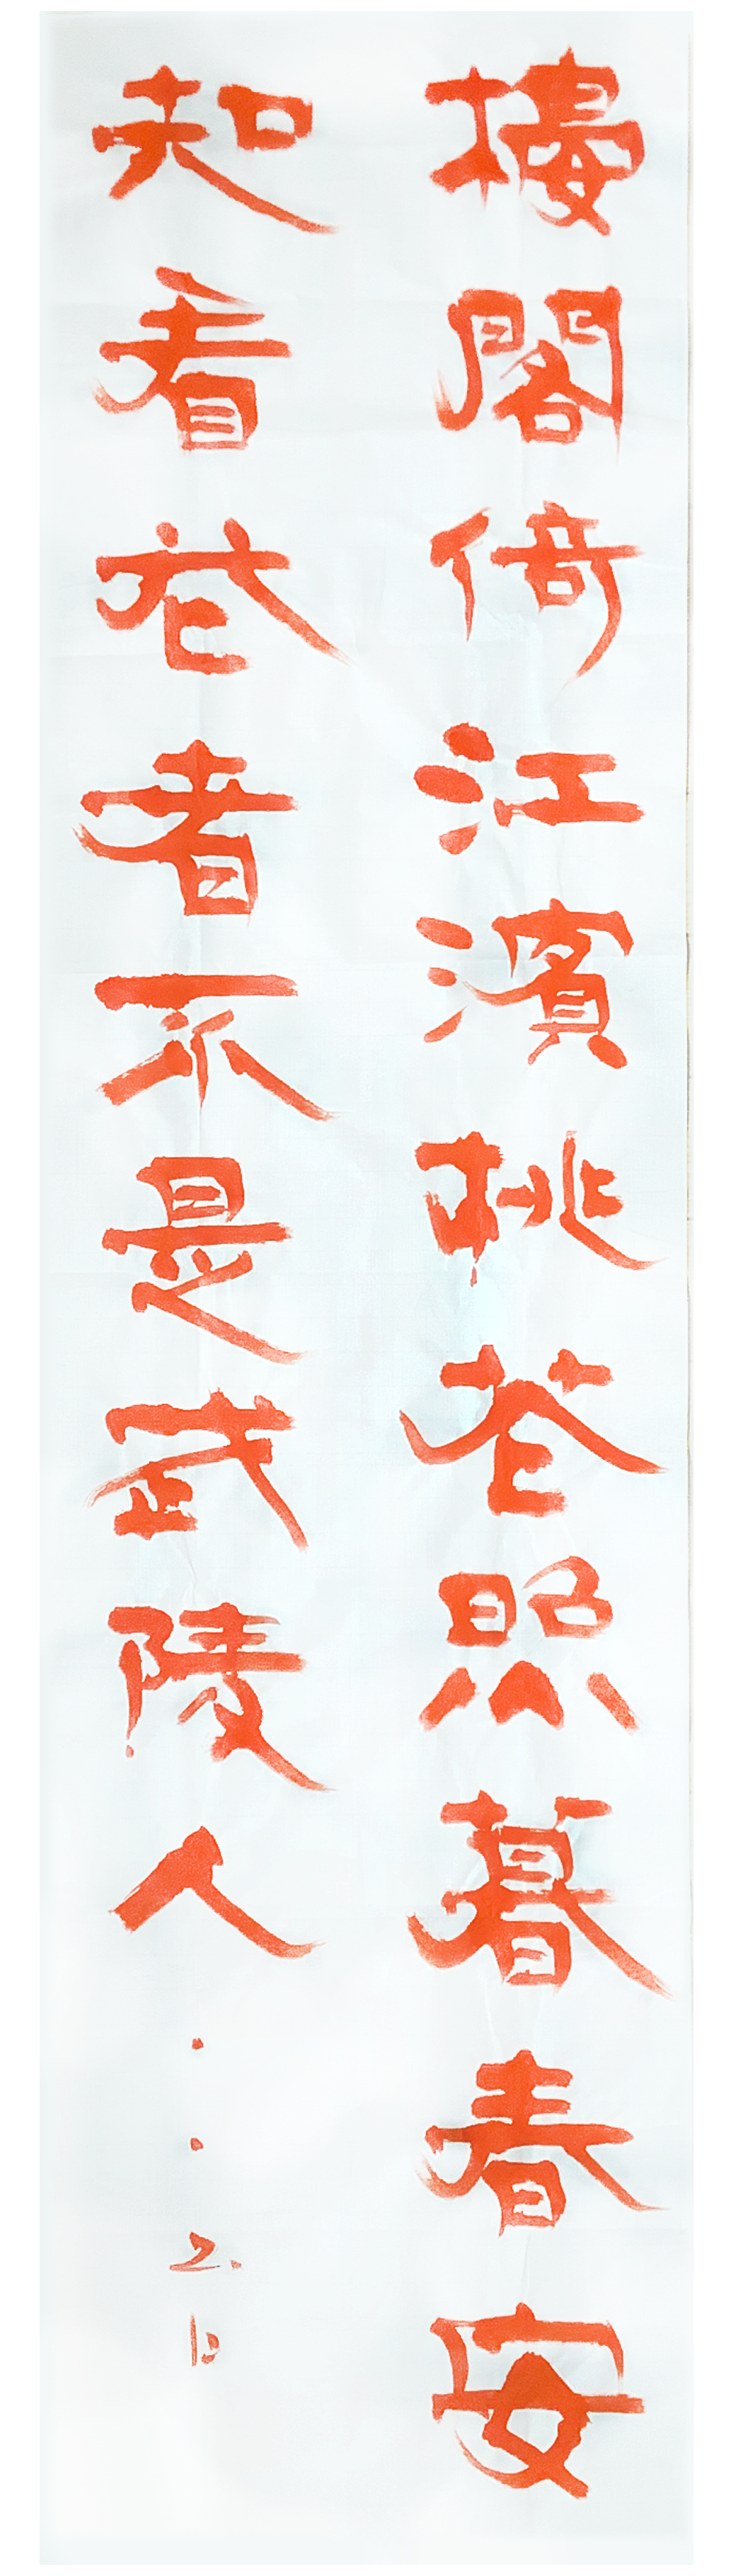 樓閣倚江濱桃花照暮春安
知看花者不是武陵人